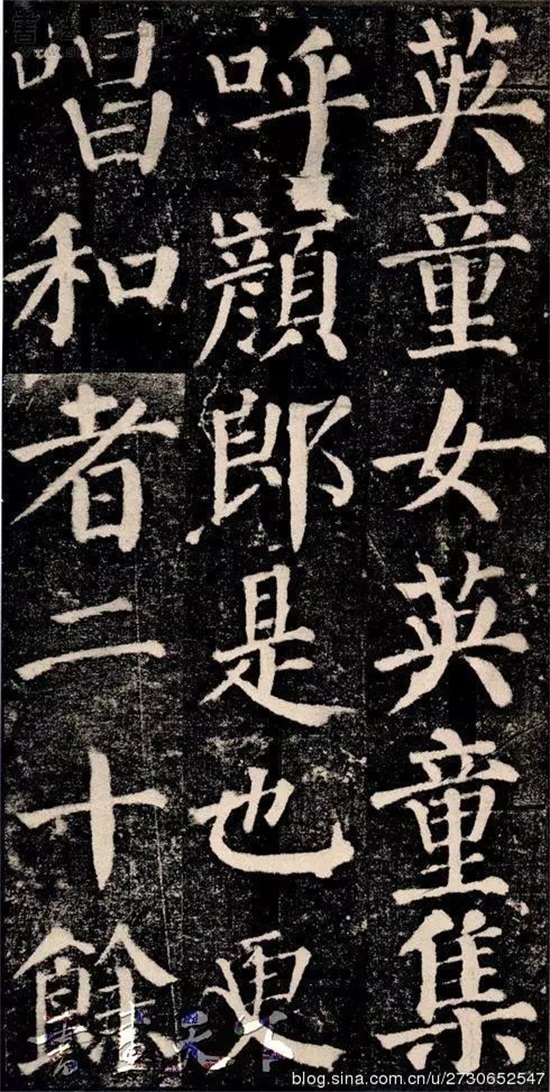 英童女英童集
呼顏郎是也更
唱和者二十餘
blog.sina.com.cn/u/2730652547